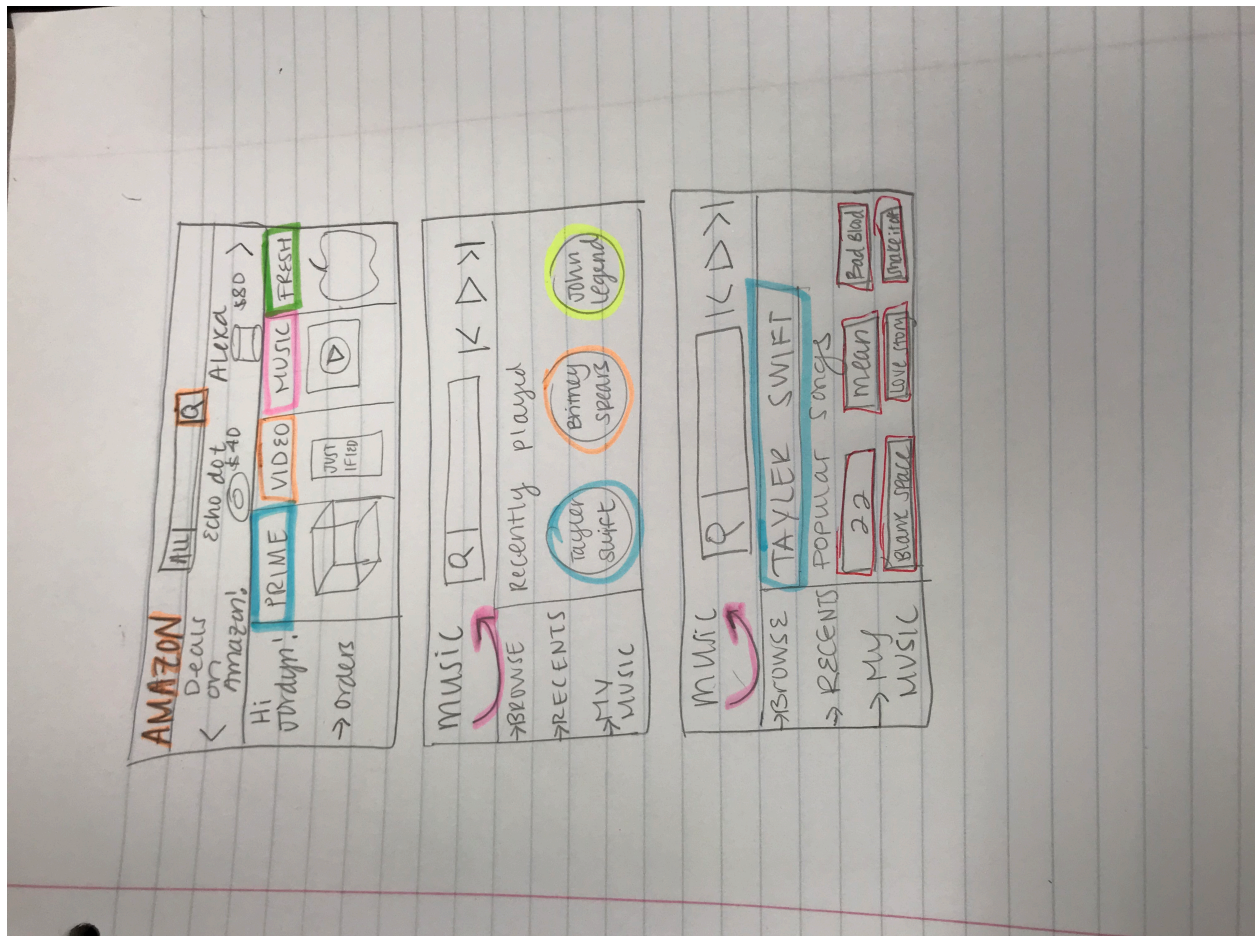 AMAZON
ALL
Deals on Amazon!
Echo dot
$40
Alexa
$80
Hi Jordyn!
PRIME
VIDEO
MUSIC
FRESH
→ orders
JUST
IFIED
music
Q
→BROWSE
→RECENTS
→MY
MUSIC
Recently played
Tayler
Swift
Britney
Spears
John
Legend
music
Q
→BROWSE
→ RECENTS
→ MY
MUSIC
TAYLER SWIFT
POPULAR songs
22
mean
Bad Blood
Blank Space
Love Story
Shake it off